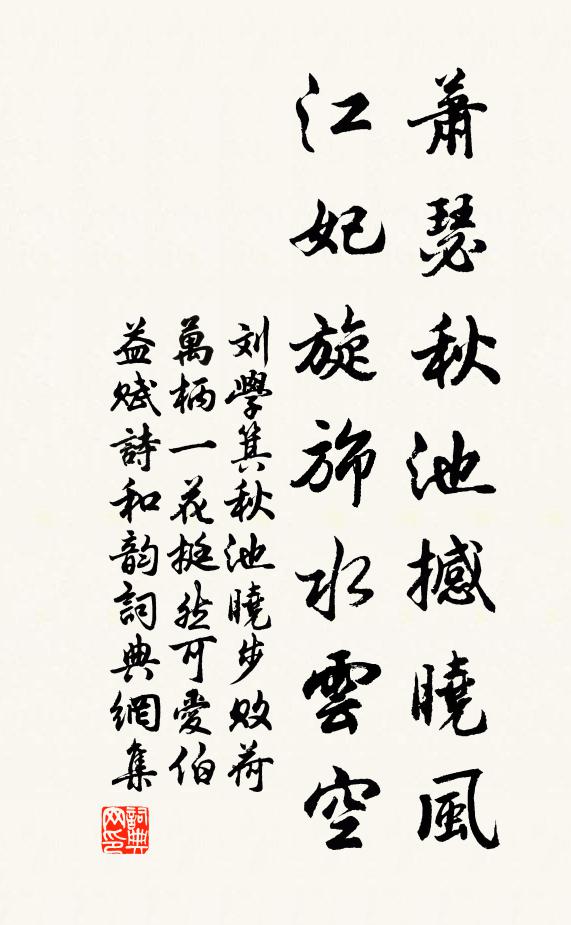 蕭瑟秋池撼曉風
江妃旋旆水雲空
刘學箕秋池曉步敗荷
萬柄一花挺然可愛伯
益赋詩和韵詞典網集
詞典
网印